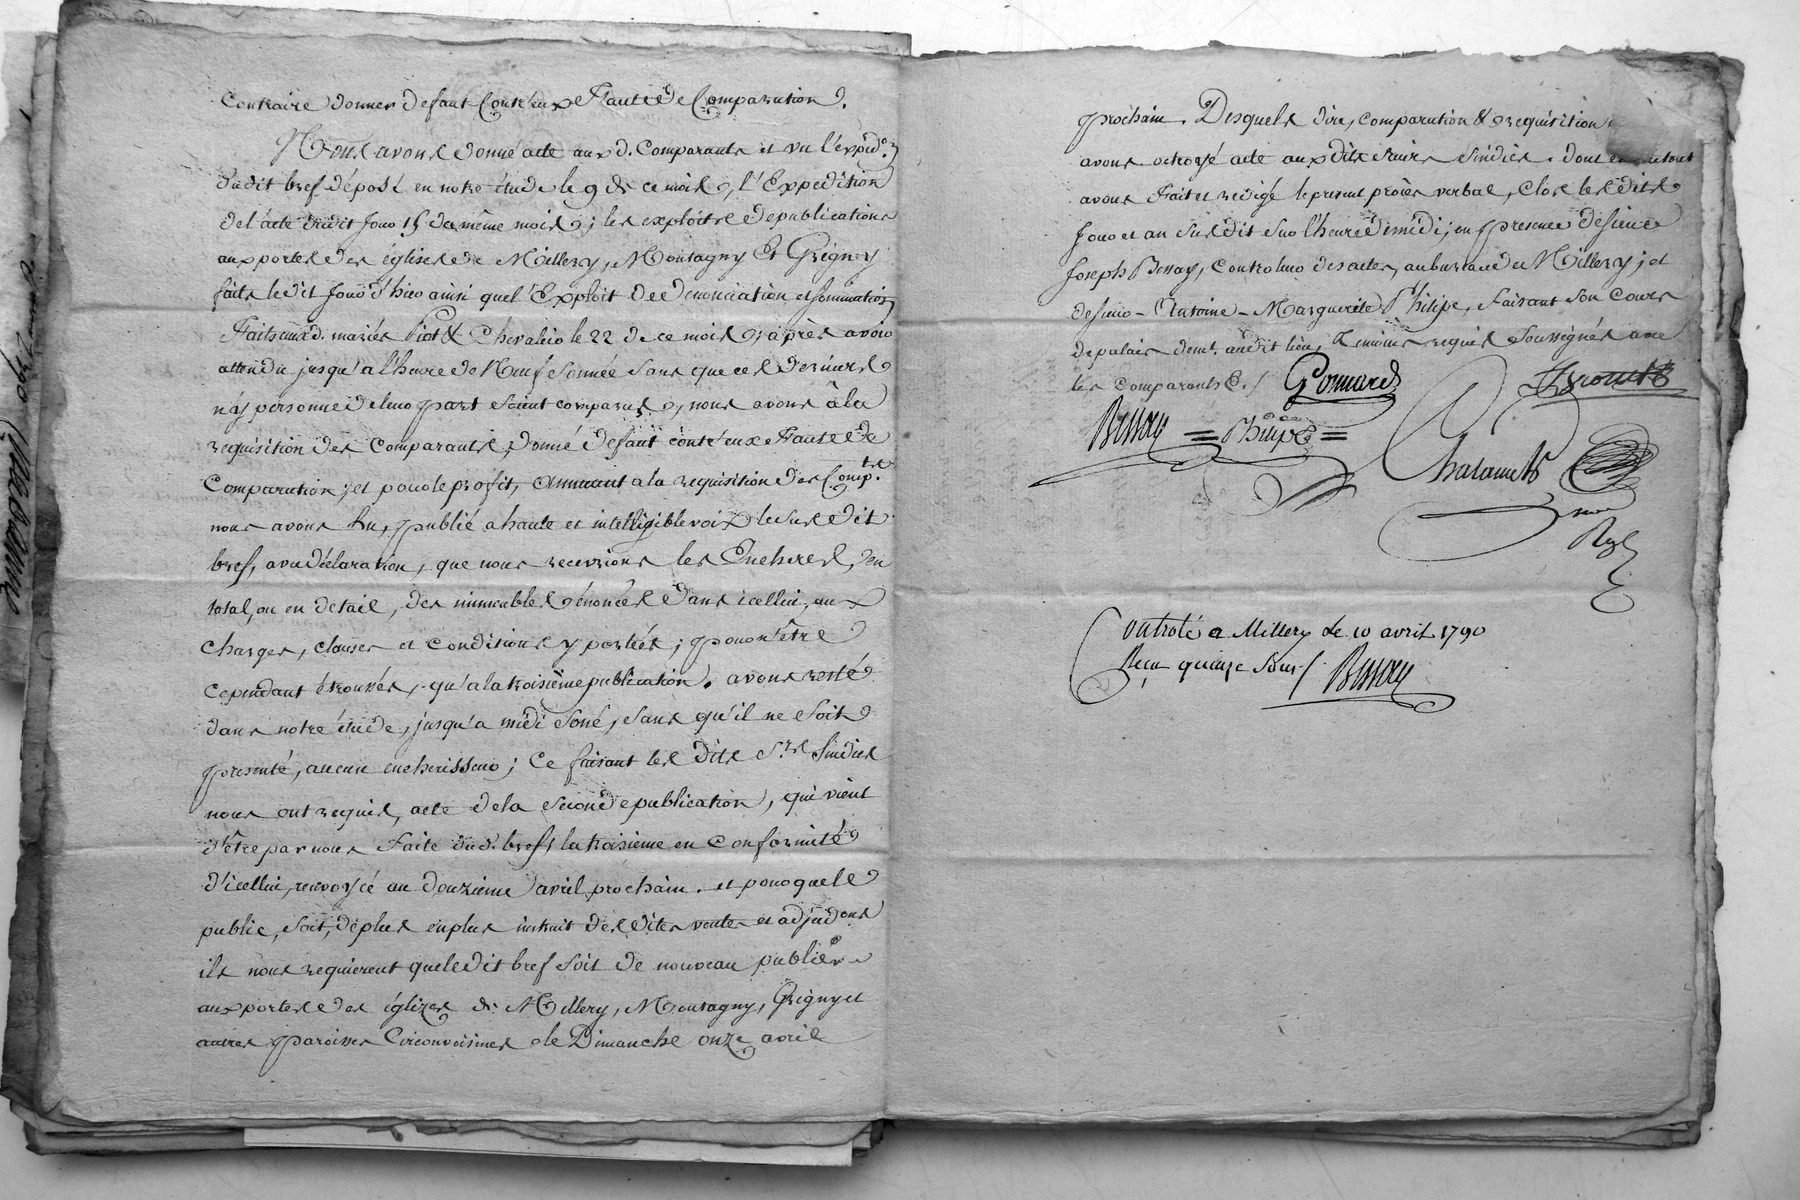 contraire donner defaut Contr'eux Faute de Comparution.
Nous avons donné acte aux d. Comparants et vu l'expédon.
dudit bref déposé en notre étude le 9 de ce mois, l'Expedition
de l'acte dudit Jour 15 du même mois; les exploits de publications
aux portes des églises de Millery, Montagny Et Grigny
faits ledit Jour d'hier ainsi que l'Exploit de denonciation et sommation
Faits aux d. mariés Piot & Chevalier le 22 de ce mois, après avoir
attendu jusqu'a l'heure de Neuf sonnée sans que ces derniers
n'ay personne de leur part soient comparus, nous avons à la
requisition des Comparants, donné defaut contr'eux Faute de
Comparution; et pour le profit, Annuant a la requisition des Compts.
nous avons lu, publié a haute et intelligible voix le susdit
bref, avec déclaration, que nous recevrions les Encheres, en
total, ou en detail, des immeubles énoncés dans icellui, aux
charges, clauses et conditions y portées; pour n'être
cependant étroussés, qu'a la troisième publication. avons resté
dans notre étude, jusqu'a midi soné, sans qu'il ne soit
presenté, aucun encherisseur; Ce faisant les dits Srs. Sindics
nous ont requis, acte de la seconde publication, qui vient
d'être par nous Faite dud. bref, la troisieme en Conformité
d'icellui, renvoyée au douzieme avril prochain. et pour que le
public, soit, de plus en plus instruit des dites ventes et adjudons
ils nous requierent que ledit bref soit de nouveau publié
aux portes des églizes de Millery, Montagny, Grigny et
autres paroisses Circonvoisines le Dimanche onze avril
prochain. Desquels dire, comparution & requisition
avons octroyé acte aux dits Sieurs Sindics. dont et du tout
avons Fait et redigé le present procès verbal, Clos les dits
Jour et an susdit sur l'heure de midi; en presence de sieur
Joseph Bessay, controleur des actes, au bureau de Millery; et
de sieur Antoine Marguerite Philipe, Faisant son Cours
de palais demt. audit lieu, Temoins requis Soussignés avec
les Comparants.
Gonnard
Bessay = Philipe =
Chalamets
Controlé a Millery le 10 avril 1790
Reçu quinze sous Bessay